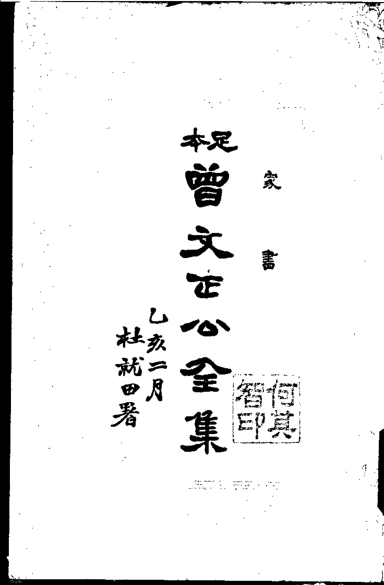 家書
足本
曾文正公全集
乙亥二月
杜就田署
何其
智印